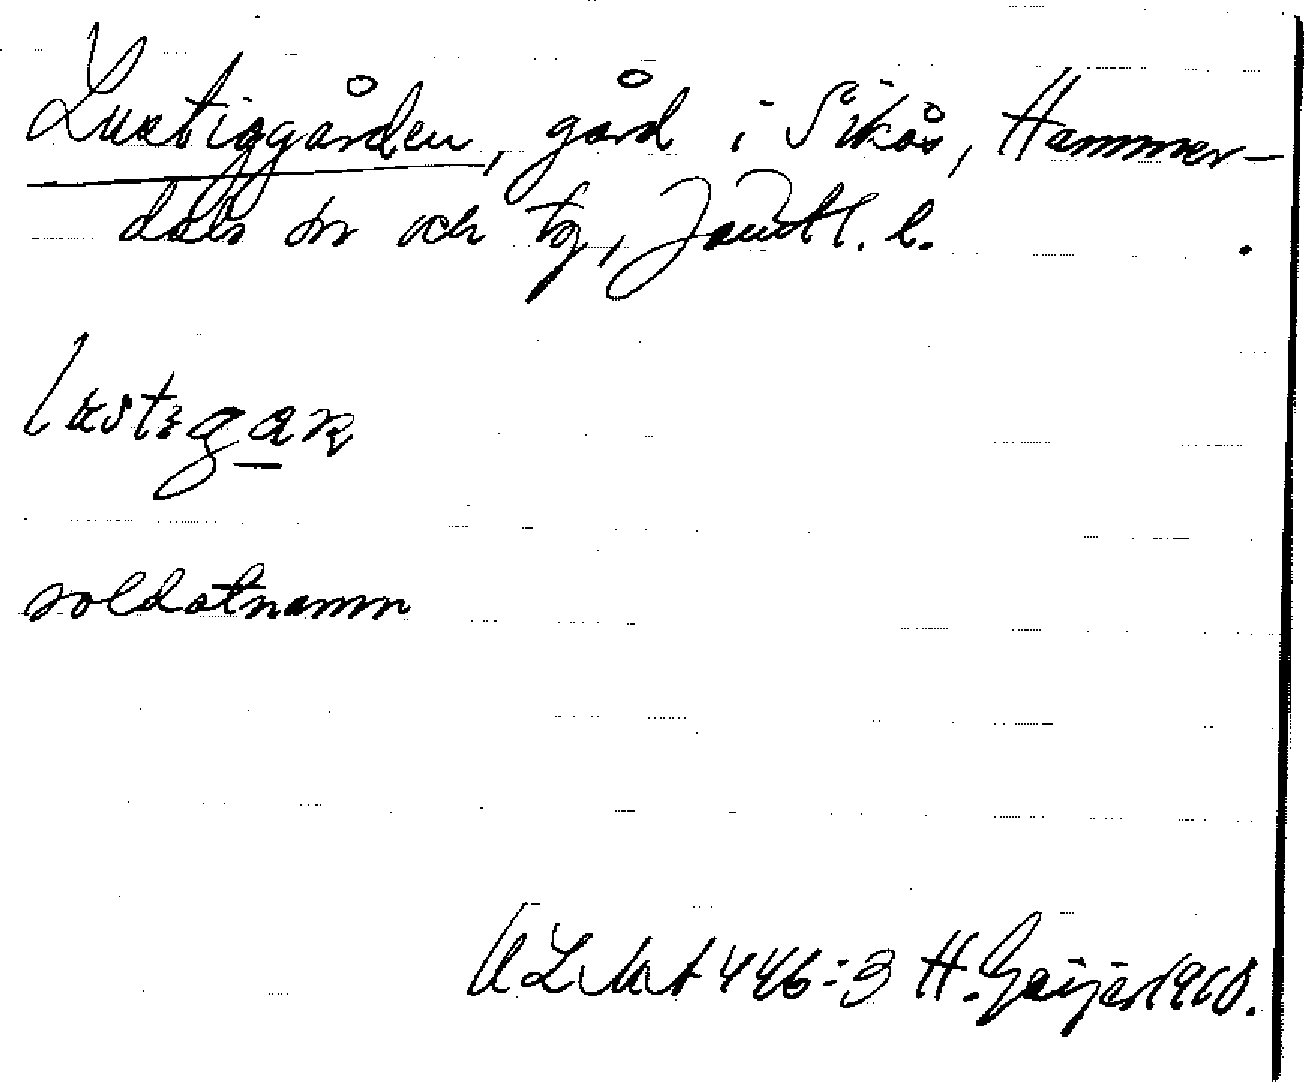 Lustiggården, gård i Sikås, Hammer-
dals sn och tg, Jämtl. l.
lustigan
soldatnamn
ULMA 446:3 H. Geijer 1910.